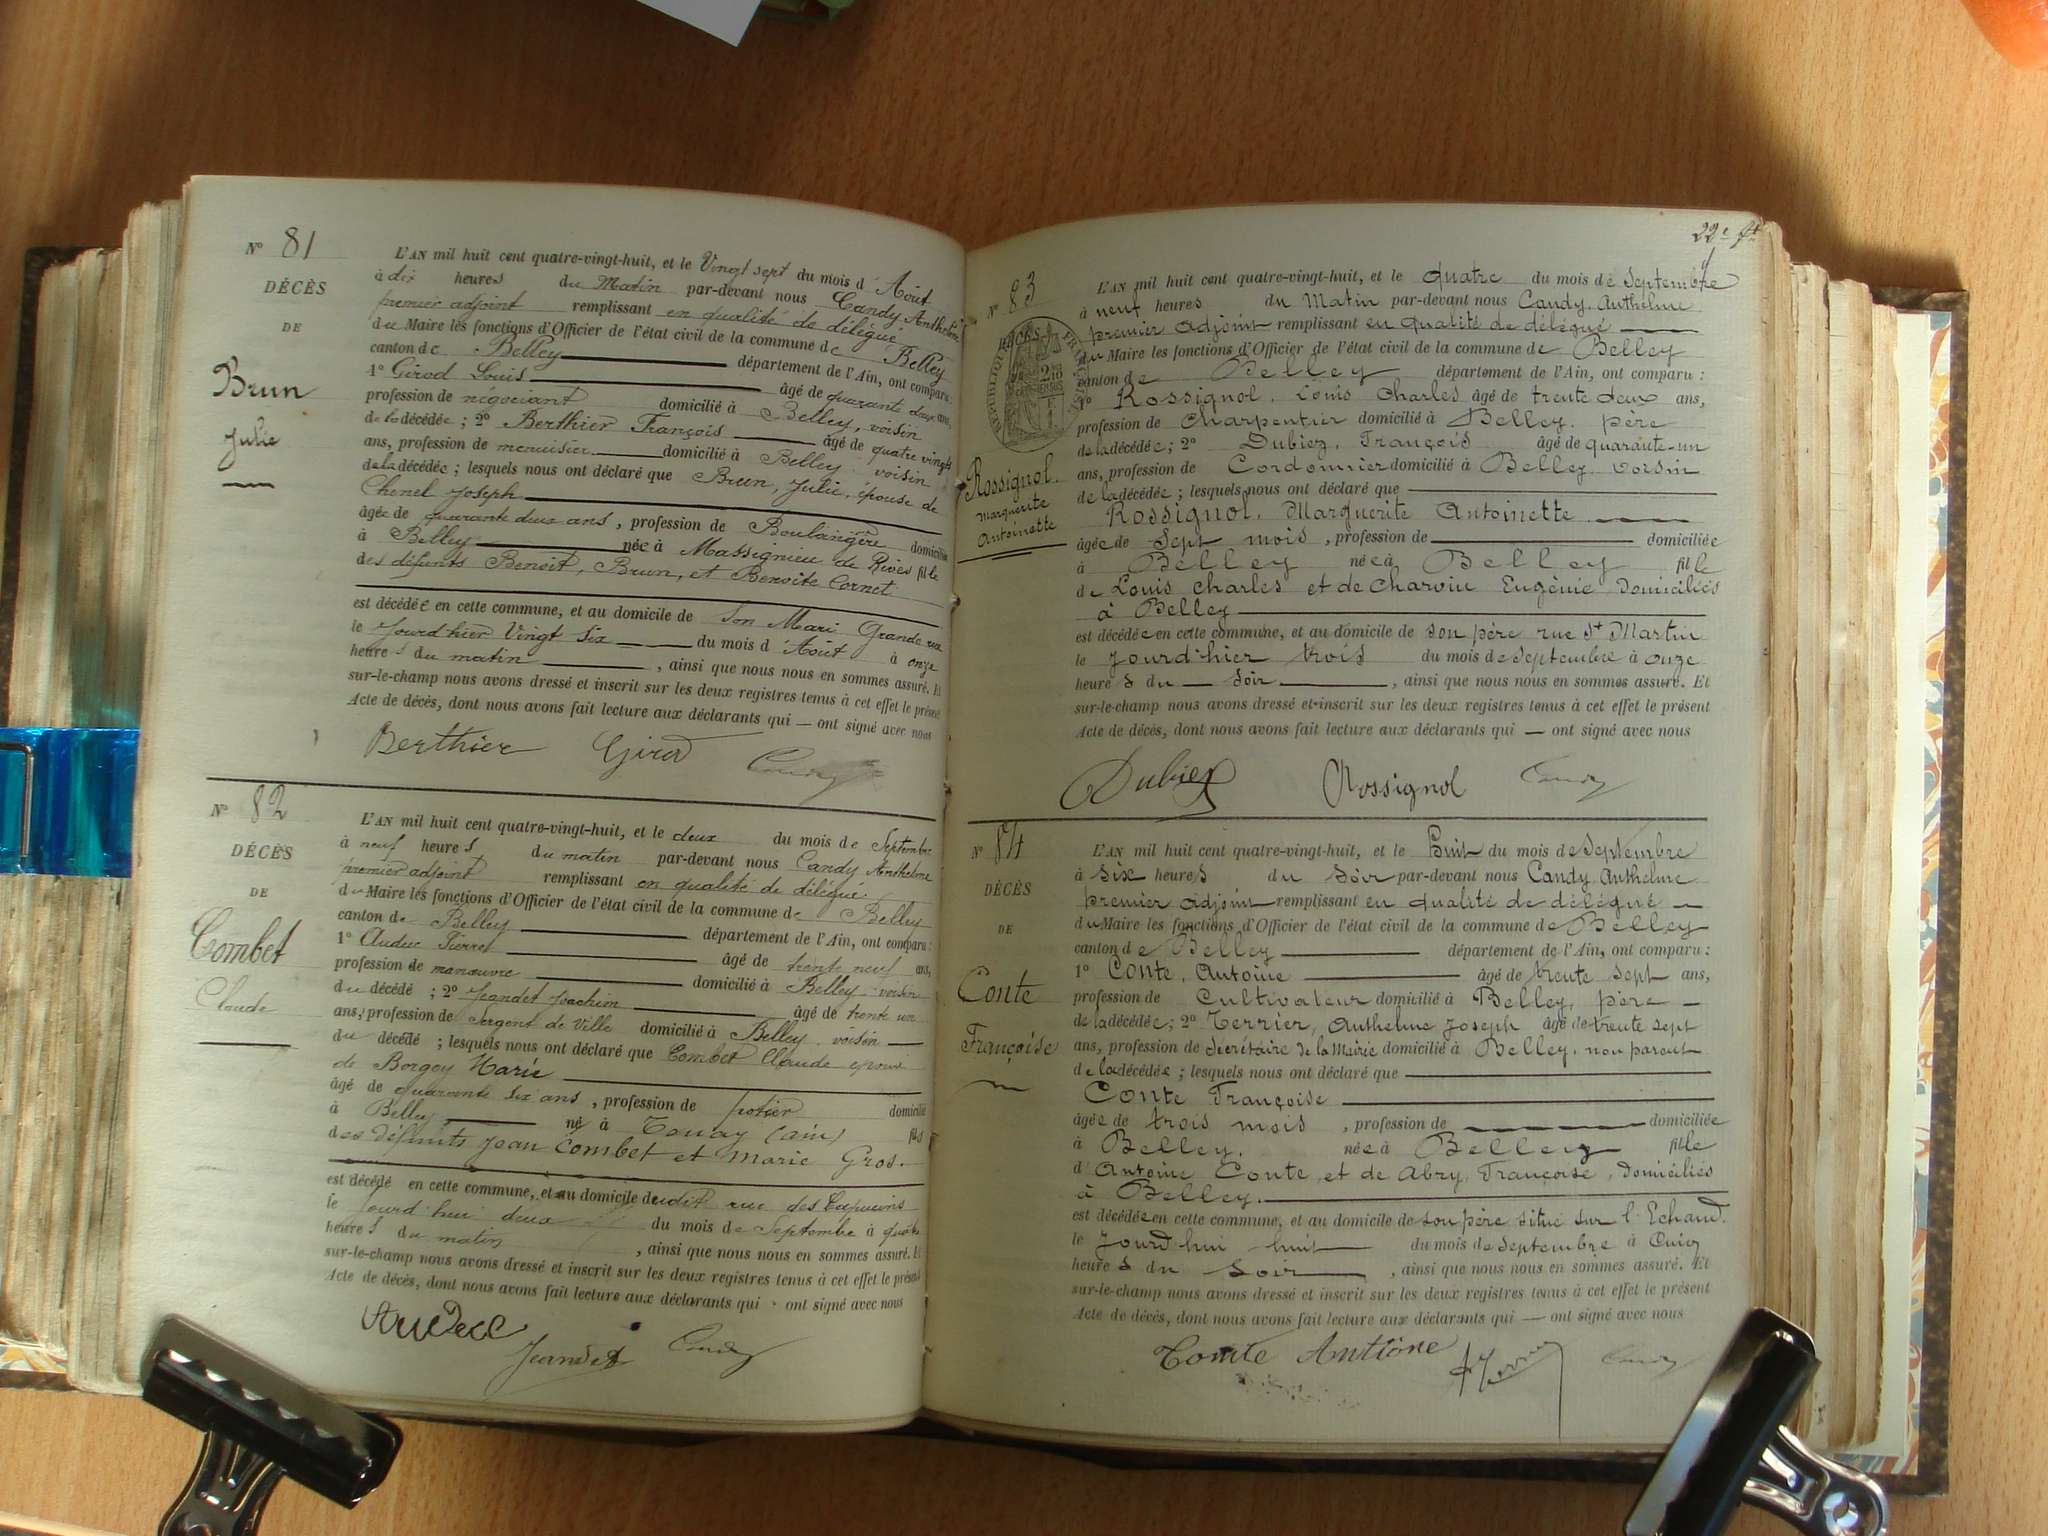 N° 81
DÉCÈS
DE
Brun
Julie
L'AN mil huit cent quatre-vingt-huit, et le Vingt sept du mois d'Août
à dix heures du Matin par-devant nous Candy Anthelme
premier adjoint remplissant en qualité de délégué
du Maire les fonctions d'Officier de l'état civil de la commune de Belley
canton de Belley département de l'Ain, ont comparu :
1° Girod Louis âgé de quarante deux ans,
profession de négociant domicilié à Belley, voisin
de la décédée ; 2° Berthier François âgé de quatre vingts
ans, profession de menuisier domicilié à Belley voisin
de la décédée ; lesquels nous ont déclaré que Brun, Julie, épouse de
Chenel Joseph
âgée de quarante deux ans, profession de Boulangère domiciliée
à Belley née à Massignieu de Rives fille
des défunts Benoit, Brun, et Benoite Cornet
est décédée en cette commune, et au domicile de son Mari Grande rue
le jourd'hier Vingt six du mois d'Août à onze
heures du matin, ainsi que nous nous en sommes assuré. Et
sur-le-champ nous avons dressé et inscrit sur les deux registres tenus à cet effet le présent
Acte de décès, dont nous avons fait lecture aux déclarants qui — ont signé avec nous
Berthier Girod Candy
N° 82
DÉCÈS
DE
Combet
Claude
L'AN mil huit cent quatre-vingt-huit, et le deux du mois de Septembre
à neuf heures du matin par-devant nous Candy Anthelme
premier adjoint remplissant en qualité de délégué
du Maire les fonctions d'Officier de l'état civil de la commune de Belley
canton de Belley département de l'Ain, ont comparu :
1° Auduc Pierre âgé de trente neuf ans,
profession de manœuvre domicilié à Belley voisin
du décédé ; 2° Jeandet Joachim âgé de trente un
ans, profession de Sergent de Ville domicilié à Belley. voisin
du décédé ; lesquels nous ont déclaré que Combet Claude époux
de Borgey Marie
âgé de quarante six ans, profession de potier domicilié
à Belley né à (ain) fils
des défunts Jean Combet et Marie Gros.
est décédé en cette commune, et au domicile dudit rue des Capucins
le jourd'hui deux du mois de Septembre à quatre
heures du matin, ainsi que nous nous en sommes assuré. Et
sur-le-champ nous avons dressé et inscrit sur les deux registres tenus à cet effet le présent
Acte de décès, dont nous avons fait lecture aux déclarants qui ont signé avec nous
Auduc Jeandet Candy
22e ft
N° 83
Rossignol.
Marguerite
Antoinette
L'AN mil huit cent quatre-vingt-huit, et le quatre du mois de Septembre
à neuf heures du Matin par-devant nous Candy. Anthelme
premier adjoint remplissant en qualité de délégué
du Maire les fonctions d'Officier de l'état civil de la commune de Belley
canton de Belley département de l'Ain, ont comparu :
1° Rossignol. Louis Charles âgé de trente deux ans,
profession de Charpentier domicilié à Belley. père
de la décédée ; 2° Dubiez, François âgé de quarante-un
ans, profession de Cordonnier domicilié à Belley. voisin
de la décédée ; lesquels nous ont déclaré que
Rossignol. Marguerite Antoinette
âgée de Sept mois, profession de domiciliée
à Belley née à Belley fille
de Louis Charles et de Charvin Eugénie Domiciliés
à Belley
est décédée en cette commune, et au domicile de son père rue St Martin
le jourd'hier trois du mois de Septembre à onze
heures du Soir, ainsi que nous nous en sommes assuré. Et
sur-le-champ nous avons dressé et inscrit sur les deux registres tenus à cet effet le présent
Acte de décès, dont nous avons fait lecture aux déclarants qui — ont signé avec nous
Dubiez Rossignol Candy
N° 84
DÉCÈS
DE
Conte
Françoise
L'AN mil huit cent quatre-vingt-huit, et le huit du mois de Septembre
à six heures du Soir par-devant nous Candy. Anthelme
premier adjoint remplissant en qualité de délégué
du Maire les fonctions d'Officier de l'état civil de la commune de Belley
canton de Belley département de l'Ain, ont comparu :
1° Conte, Antoine âgé de trente sept ans,
profession de Cultivateur domicilié à Belley, père
de la décédée ; 2° Terrier, Anthelme Joseph âgé de trente sept
ans, profession de Secrétaire de la Mairie domicilié à Belley. non parent
de la décédée ; lesquels nous ont déclaré que
Conte Françoise
âgée de trois mois, profession de domiciliée
à Belley. née à Belley fille
d'Antoine Conte, et de Abry, Françoise, Domiciliés
à Belley.
est décédée en cette commune, et au domicile de son père situé sur l'Echaud.
le jourd'hui huit du mois de Septembre à Cinq
heures du Soir, ainsi que nous nous en sommes assuré. Et
sur-le-champ nous avons dressé et inscrit sur les deux registres tenus à cet effet le présent
Acte de décès, dont nous avons fait lecture aux déclarants qui — ont signé avec nous
Comte Antione Candy